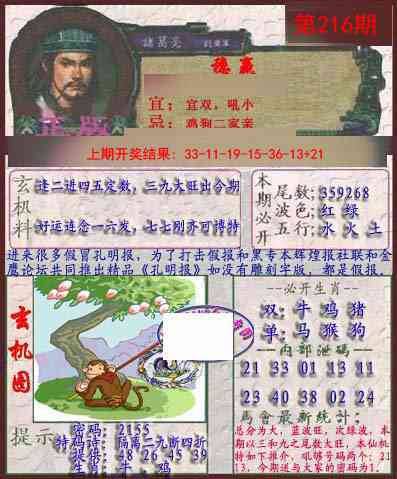 第216期
諸葛亮
穩贏
宜:宜双,吼小
忌:鸡狗二家亲
正版
上期开奖结果:33-11-19-15-36-13+21
玄机料
逢二进四五定数,三九大旺出今期
好运连念一六发,七七刚齐可博特
本期必开
尾数:359268
波色:红 绿
五行:水 火 土
进来很多假冒孔明报,为了打击假报和黑专本辉煌报社联和金
鹰论坛共同推出精品《孔明报》如没有雕刻字版,都是假报。
玄机图
--必开生肖--
双:牛 鸡 猪
单:马 猴 狗
--内部泄码--
21 33 01 13 11
23 40 38 02 24
馬會最新統计:
总分为大,蓝波旺,次绿波,本
期以三和九之尾数大旺,本仙机
特如下推介,吼够号码两个:21
13,今期送与大家的密码为1.
提示
密码:2155
特码诗:隔离二九断四折
提供:48 26 45 39
生肖:牛.鸡